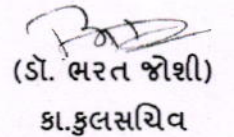 (ડૉ. ભરત જોશી)
કા.કુલસચિવ